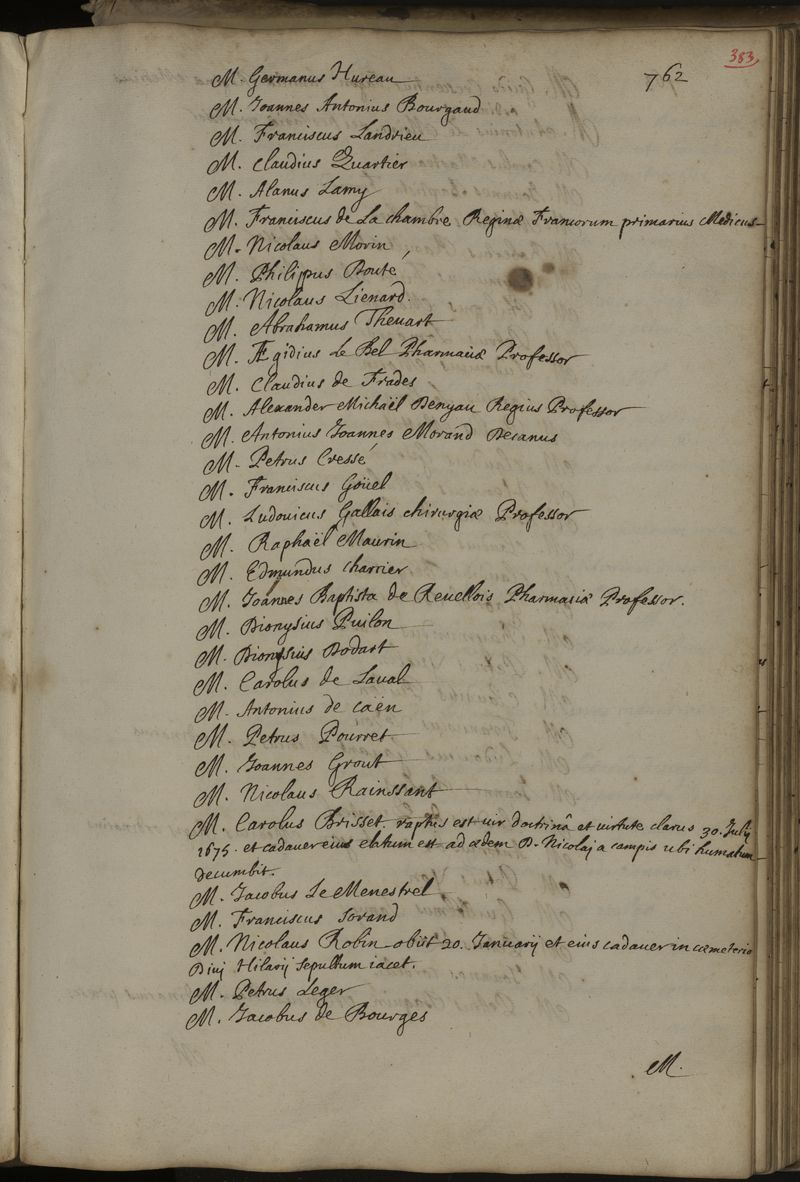 383
762
M. Germanus Hureau
M. Joannes Antonius Bourgaud
M. Franciscus Landrieu
M. Claudius Quartier
M. Alanus Lamy
M. Franciscus de La chambre Reginæ Francorum primarius Medicus
M. Nicolaus Morin
M. Philippus Bouté
M. Nicolaus Lienard.
M. Abrahamus Theuart
M. Ægidius Le Bel Pharmaciæ Professor
M. Claudius de Frades
M. Alexander Michaël Denyau Regius Professor
M. Antonius Joannes Morand Decanus
M. Petrus Cressé
M. Franciscus Goüel
M. Ludouicus Gallais chirurgiæ Professor
M. Raphaël Maurin
M. Edmundus charrier
M. Joannes Baptista de Reuellois Pharmaciæ Professor.
M. Dionysius Puilon
M. Dionysius Dodart
M. Carolus de Laual
M. Antonius de caën
M. Petrus Pourret
M. Joannes Grout
M. Nicolaus Rainssant
M. Carolus Brisset. raptus est uir doctrinâ et uirtute clarus 30. Julij
1675. et cadauer eius elatum est ad ædem D. Nicolaj a campis ubi humatum
decumbit.
M. Jacobus Le Menestrel
M. Franciscus Sorand
M. Nicolaus Robin obiit 20. Januarij et eius cadauer in cæmeterio
Diuj Hilarij sepultum iacet.
M. Petrus Leger
M. Jacobus de Bourges
M.